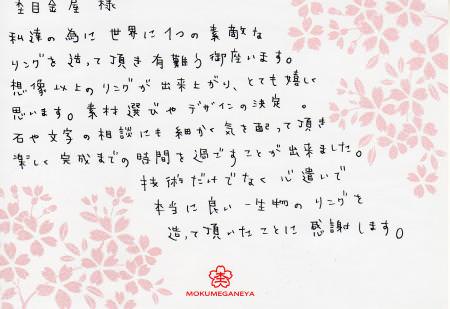 杢目金屋 様
私達の為に世界に1つの素敵な
リングを造って頂き有難う御座います。
想像以上のリングが出来上がり、とても嬉しく
思います。素材選びやデザインの決定。
石や文字の相談にも細かく気を配って頂き
楽しく完成までの時間を過ごすことが出来ました。
技術だけでなく心遣いで
本当に良い一生物のリングを
造って頂いたことに感謝します。
MOKUMEGANEYA